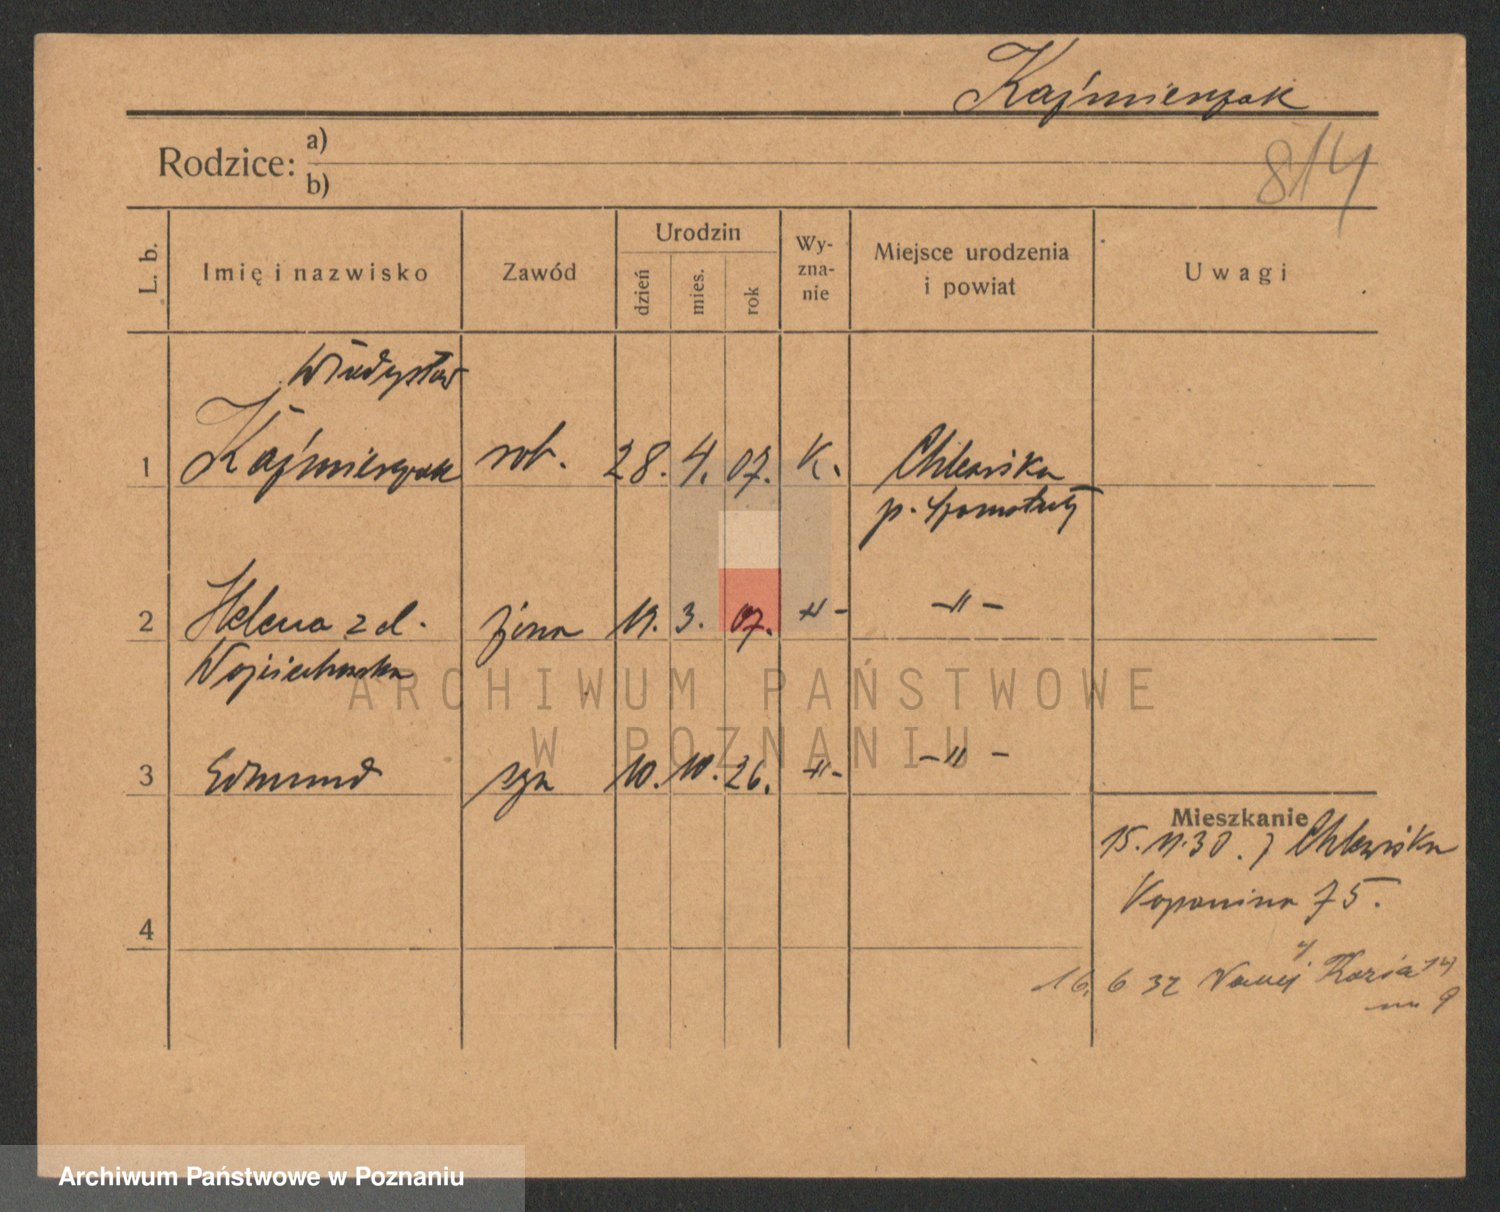 Kaźmierczak
814
Rodzice: a)
b)
L. b. Imię i nazwisko Zawód Urodzin dzień mies. rok Wy-zna-nie Miejsce urodzenia i powiat Uwagi
Władysław
1 Kaźmierczak rob. 28. 4. 07. K. Chlewiska
p. Szamotuły
2 Helena z d. żona 19. 3. 07. -"- -"-
Wojciechowska
ARCHIWUM PAŃSTWOWE
W POZNANIU
3 Edmund syn 10. 10. 26. -"- -"-
Mieszkanie
15. 11. 30. z Chlewiska
Kopanina 75.
4
16. 6 32
Archiwum Państwowe w Poznaniu